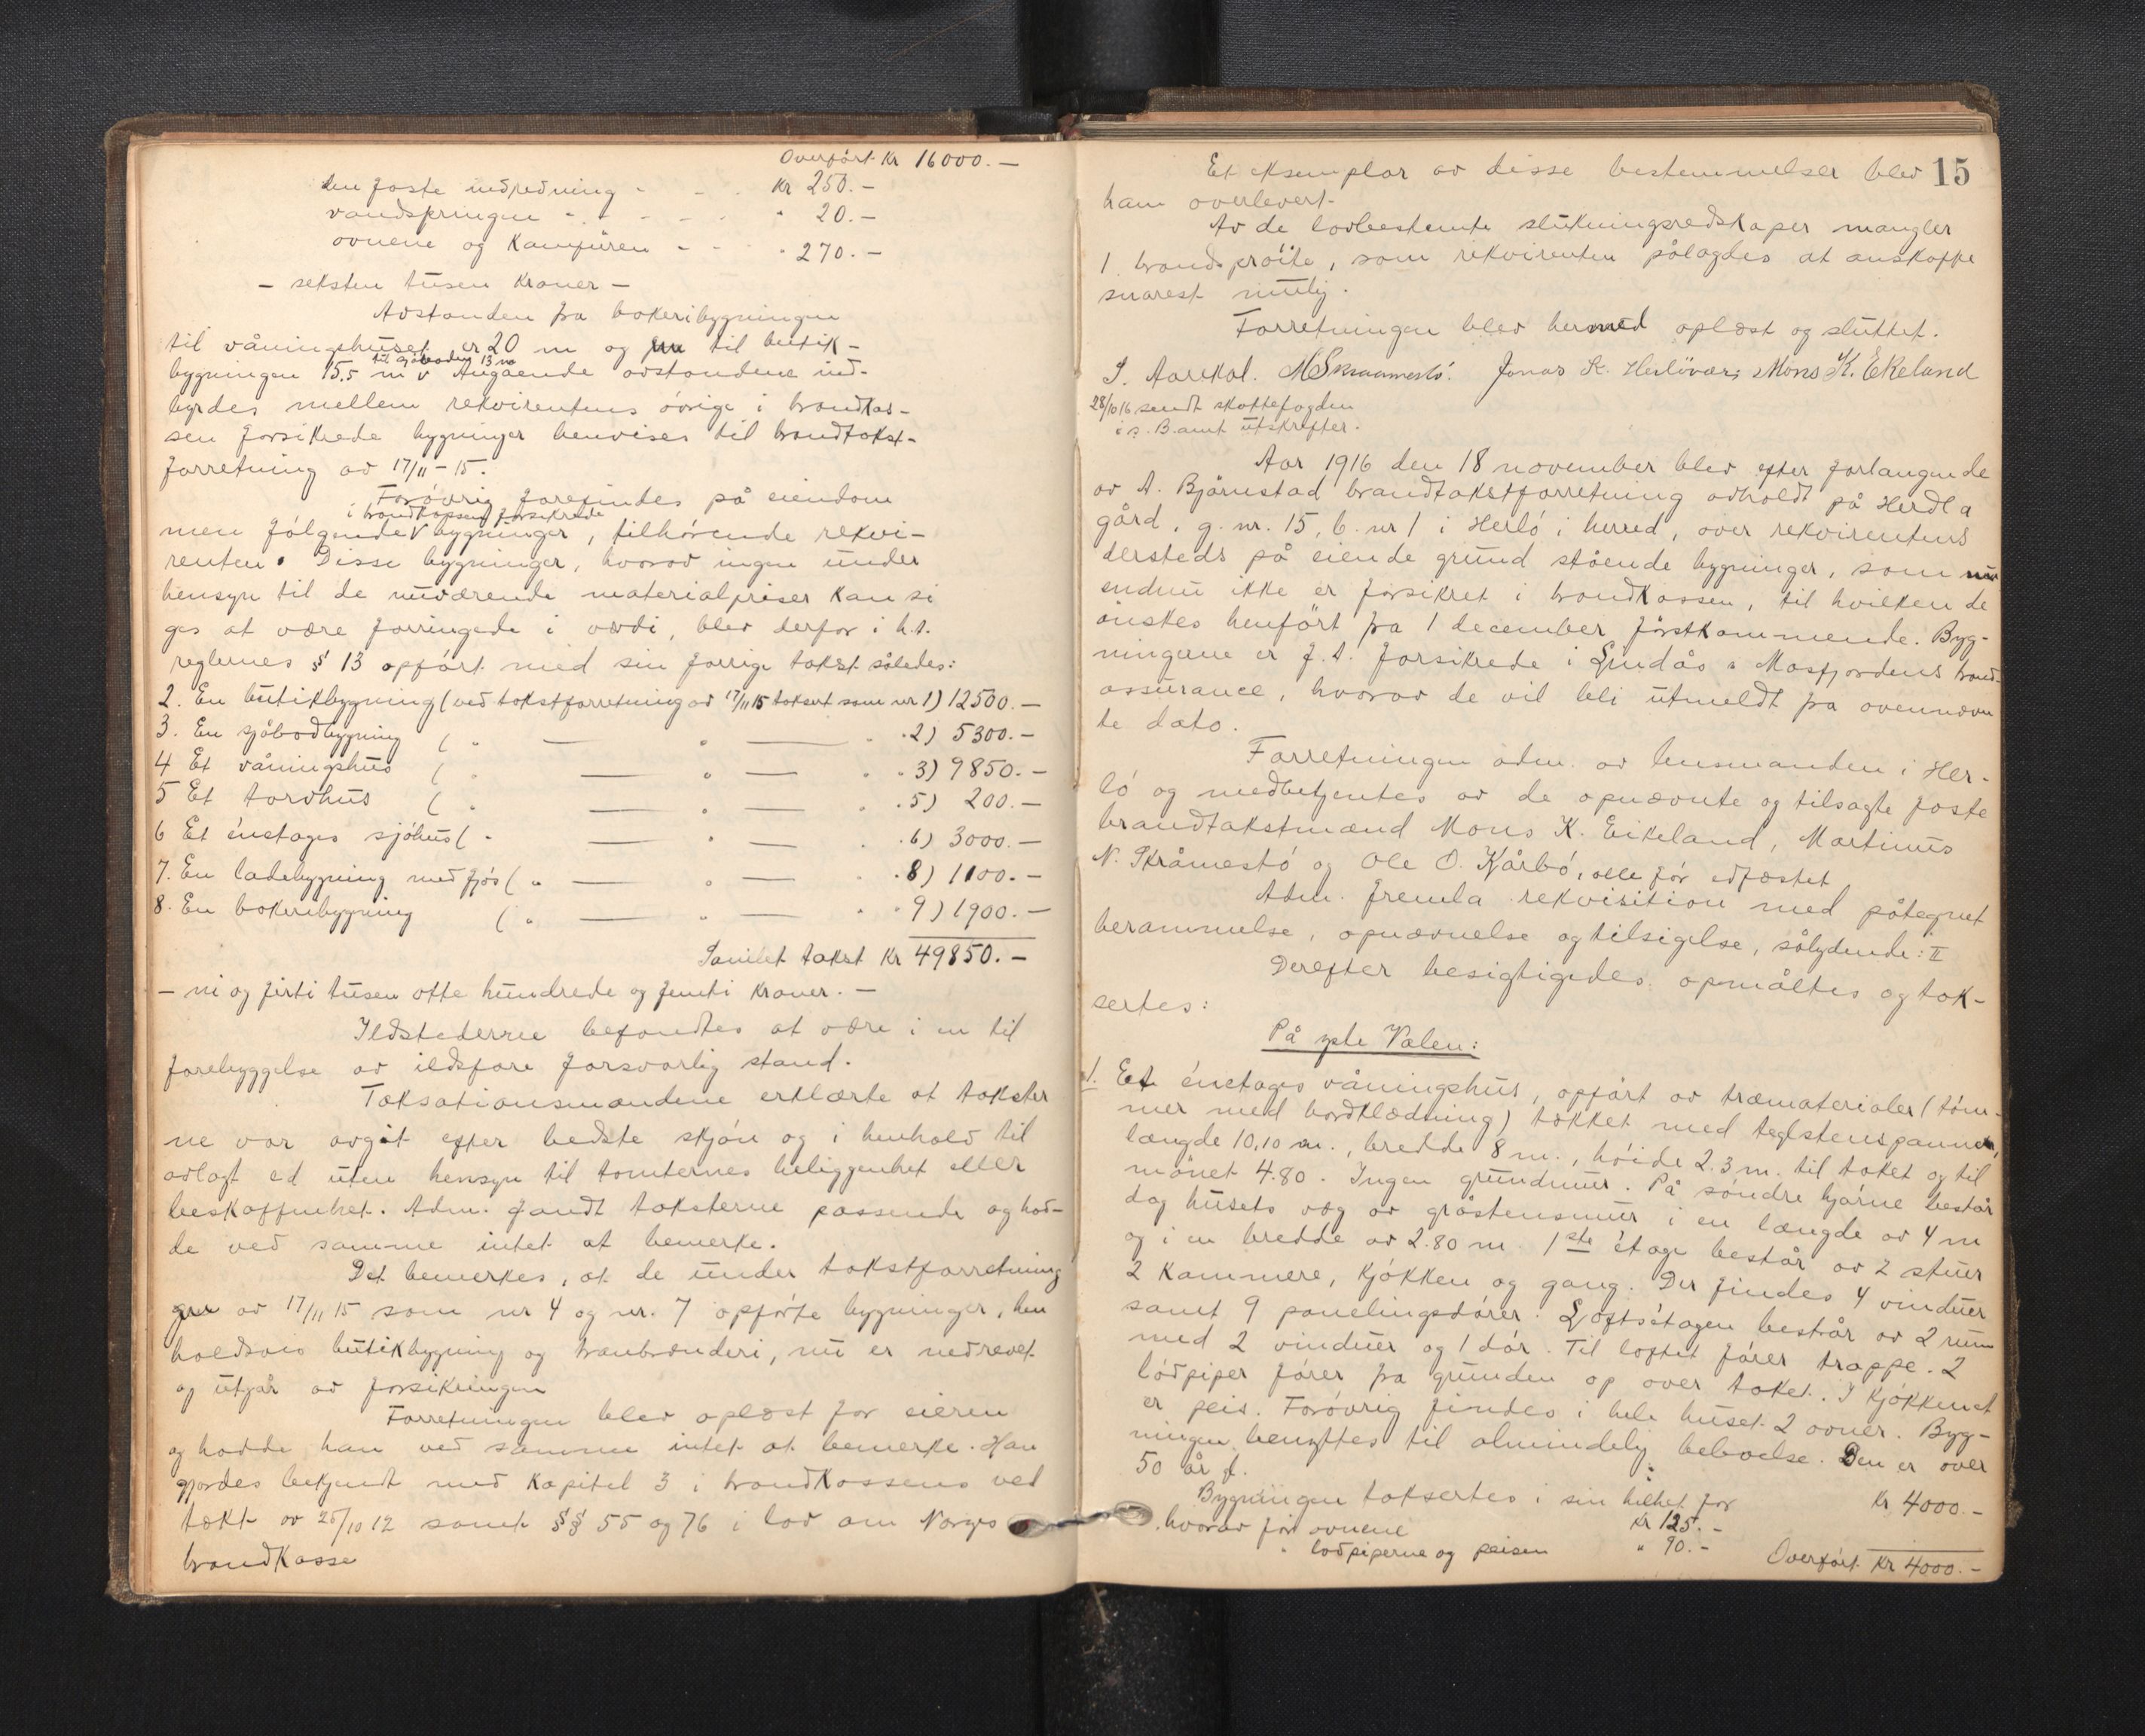 Overført Kr 16000.-
den faste indredning - - - Kr 250.-
vandspringen - - - - " 20.-
ovnene og Kamfüren - - " 270.-
- seksten tusen kroner -
Avstanden fra bakeribygningen
til våningshuset er 20 m og til butik-
bygningen 15,5 m v Angående avstandene ind-
til sjøboden 13 m
byrdes mellem rekvirentens øvrige i brandkas-
sen forsikrede bygninger henvises til brandtakst-
forretning av 17/11-15.
Forøvrig forefindes på eiendom
i brandkassen forsikrede
men følgende v bygninger, tilhørende rekvi-
renten. Disse bygninger, hvorav ingen under
hensyn til de nuværende materialpriser kan si
ges at være forringede i værdi, blev derfor i h.t.
reglernes § 13 opført med sin forrige takst således:
2. En butikbygning (ved takstforretning av 17/11 15 taksert som nr 1) 12500.-
3. En sjøbodbygning ( " — " — " " 2) 5300.-
4 Et våningshus ( " — " — " " 3) 9850.-
5 Et torvhus ( " — " — " " 5) 200.-
6 Et énetages sjøhus ( " — " — " " 6) 3000.-
7. En ladebygning med fjøs ( " — " — " " 8) 1100.-
8. En bakeribygning ( " — " — " " 9) 1900.-
Samlet takst Kr 49850.-
- ni og firti tusen otte hundrede og femti kroner. -
Ildstederne befandtes at være i en til
forebyggelse av ildsfare forsvarlig stand.
Taksationsmændene erklærte at takster
ne var avgit efter bedste skjøn og i henhold til
avlagt ed uten hensyn til tomternes beliggenhet eller
beskaffenhet. Adm. fandt taksterne passende og had-
de ved samme intet at bemerke.
Det bemerkes, at de under takstforretning
gen av 17/11 15 som nr 4 og nr. 7 opførte bygninger, hen
holdsvis butikbygning og brænbrænderi, nu er nedrevet
og utgår av forsikringen
Forretningen blev oplæst for eieren
og hadde han ved samme intet at bemerke. Han
gjordes bekjendt med kapitel 3 i brandkassens ved
tækt av 25/10 12 samt §§ 55 og 76 i lov om Norges
brandkasse
15
Et eksemplar av disse bestemmelser blev
ham overlevert.
Av de lovbestemte slukningsredskaper mangler
1 brandsprøite, som rekvirenten pålagdes at anskaffe
snarest mulig.
Forretningen blev hermed oplæst og sluttet.
S. Aarekol. M Skraamestø. Jonas K. Herløvær; Mons K. Ekeland
28/10 16 sendt skattefogden
i s. B. amt utskrifter.
Aar 1916 den 18 november blev efter forlangende
av A. Bjørnestad brandtakstforretning avholdt på Herdla
gård, g. nr. 15, b. nr 1 i Herlø i herred, over rekvirentens
dersteds på eiende grund stående bygninger, som
endnu ikke er forsikret i brandkassen, til hvilken de
ønskes henført fra 1 december førstkommende. Byg-
ningene er f.t. forsikrede i Lindås & Masfjordens brand-
assurance, hvorav de vil bli utmeldt fra ovennævn
te dato.
Forretningen adm. av lensmanden i Her-
lø og medbetjentes av de opnævnte og tilsagte faste
brandtakstmænd Mons K. Eikeland, Martinus
N. Skråmestø og Ole O. Kårbø, alle før edfæstet
Adm. fremla rekvisition med påtegnet
berammelse, opnævnelse og tilsigelse, sålydende: II
Derefter besigtigedes, opmåltes og tak-
sertes:
På yste Valen:
1. Et énetages våningshus, opført av træmaterialer (tøm-
mer med bordklædning) tækket med teglstenspanner,
længde 10,10 m., bredde 8 m., høide 2.3 m. til taket og til
mønet 4.80. Ingen grundmur. På søndre hjørne består
dog husets væg av gråstensmur i en længde av 4 m
og i en bredde av 2.80 m. 1ste étage består av 2 stuer
2 kammere, kjøkken og gang. Der findes 4 vinduer
samt 9 panelingsdører. Loftsétagen består av 2 rum
med 2 vinduer og 1 dør. Til loftet fører trappe. 2
lødpiper fører fra grunden op over taket. I kjøkkenet
er peis. Forøvrig findes i hele huset 2 ovner. Byg-
ningen benyttes til almindelig beboelse. Den er over
50 år gl.
Bygningen taksertes i sin helhet for Kr 4000.-
hvorav for ovnene Kr 125.-
" lødpiperne og peisen " 90.-
Overført Kr 4000.-